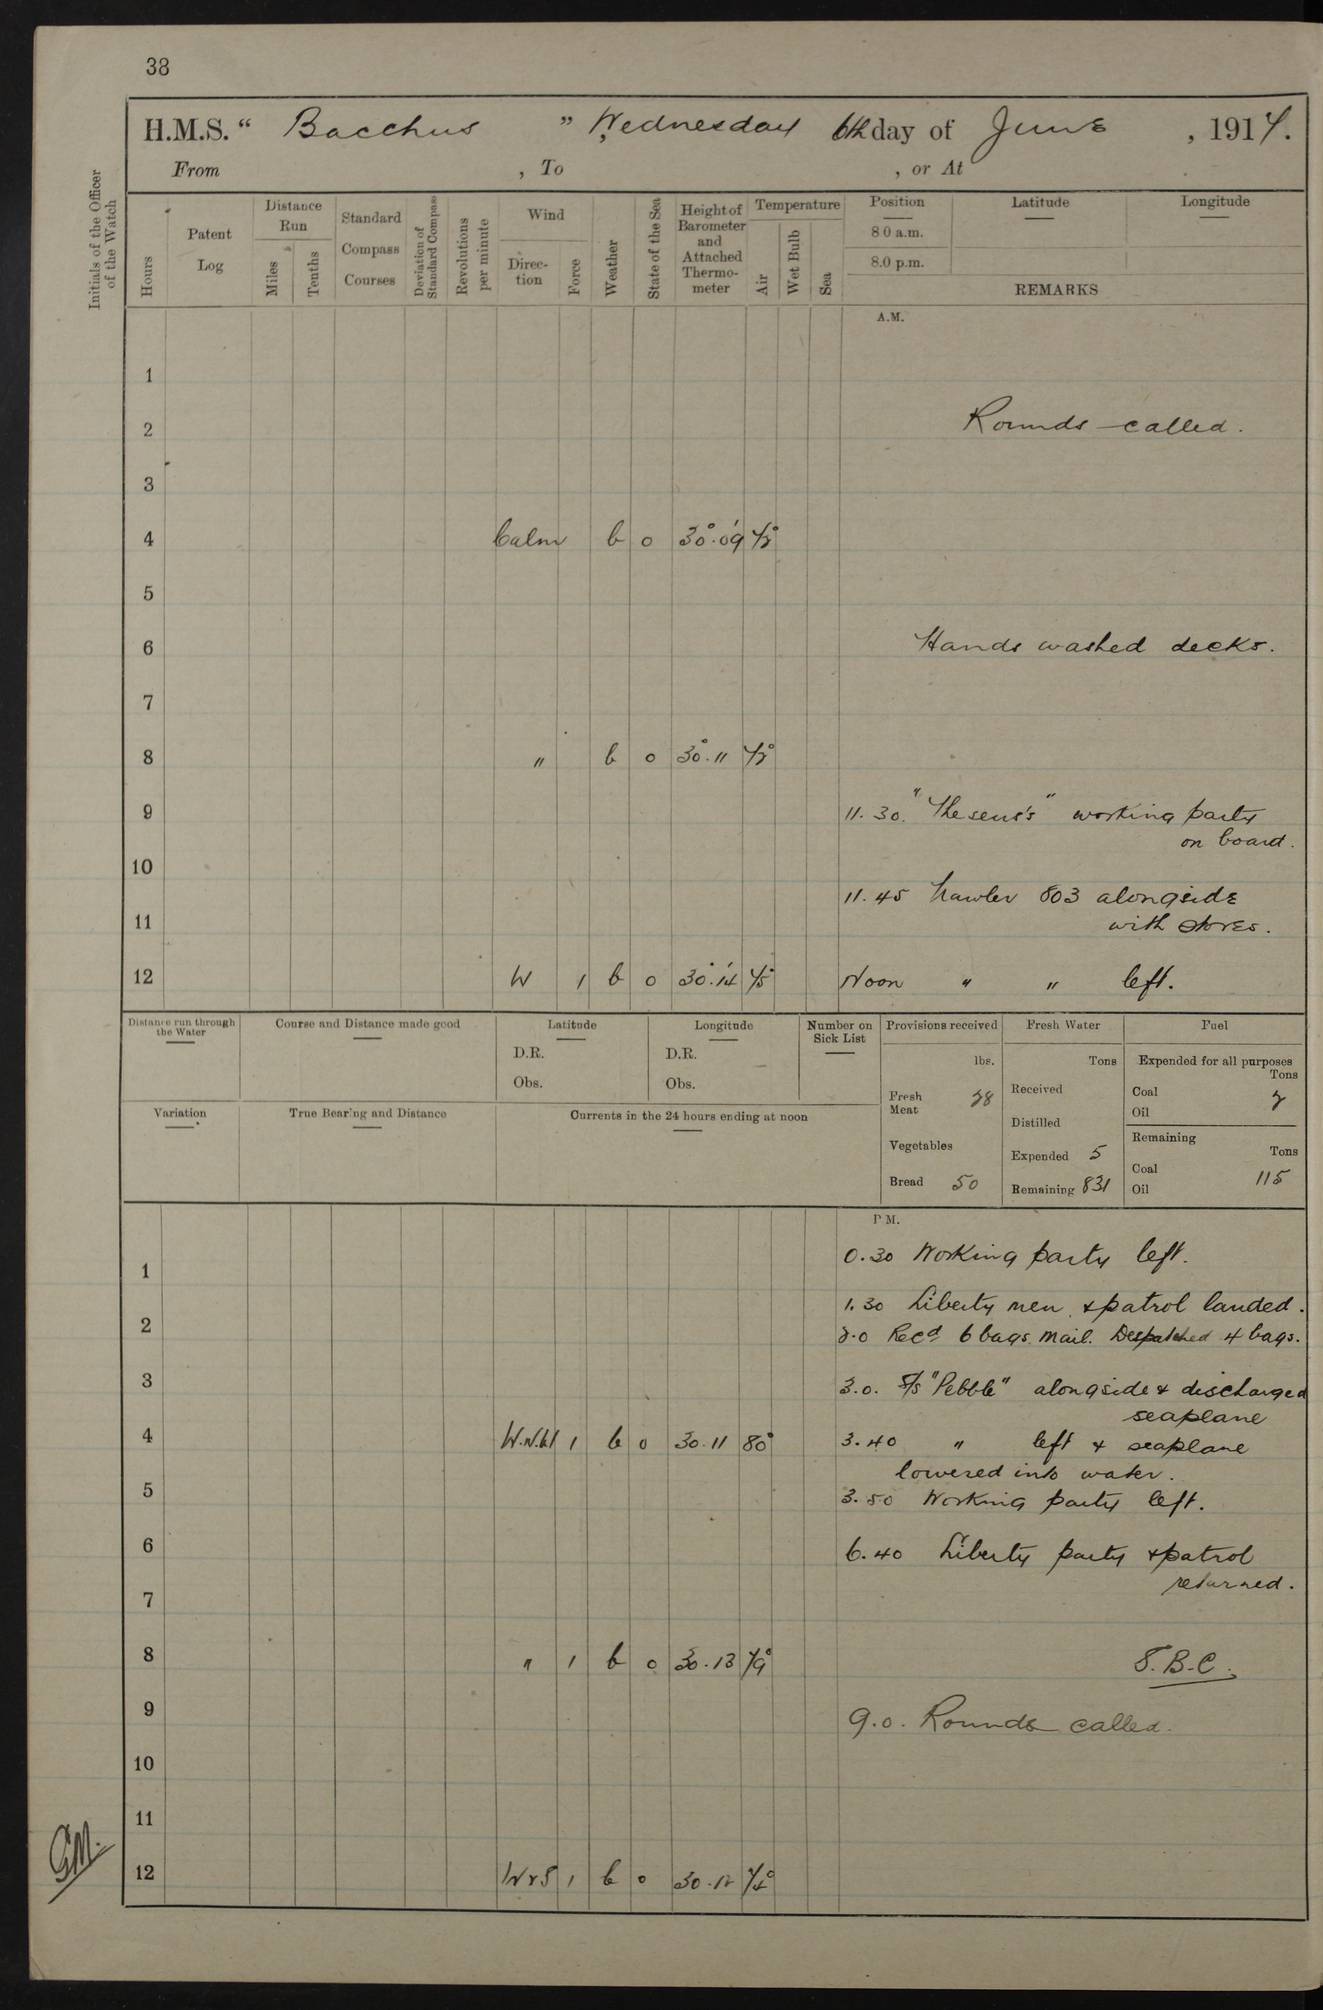 38
H.M.S. “ Bacchus ” Wednesday 6th day of June , 1917.
From , To , or At
Initials of the Officer of the Watch
Hours
Patent Log
Distance Run
Miles
Tenths
Standard Compass Courses
Deviation of Standard Compass
Revolutions per minute
Wind
Direction
Force
Weather
State of the Sea
Height of Barometer and Attached Thermometer
Temperature
Air
Wet Bulb
Sea
Position Latitude Longitude
8 0 a.m.
8.0 p.m.
REMARKS
A.M.
1
2 Rounds called.
3
4 Calm b o 30.09 72°
5
6 Hands washed decks.
7
8 " b o 30.11 72°
9 11.30. "Theseus's" working party
on board.
10
11.45 Trawler 803 alongside
11 with stores.
12 W 1 b o 30.14 75° Noon " " left.
Distance run through the Water
Course and Distance made good
Latitude
D.R.
Obs.
Longitude
D.R.
Obs.
Number on Sick List
Provisions received
lbs.
Fresh Meat 28
Vegetables
Bread 50
Fresh Water
Tons
Received
Distilled
Expended 5
Remaining 831
Fuel
Expended for all purposes
Tons
Coal 2
Oil
Remaining
Tons
Coal 115
Oil
Variation
True Bearing and Distance
Currents in the 24 hours ending at noon
P M.
0.30 Working party left.
1
1.30 Liberty men & patrol landed.
2 2.0 Recd 6 bags mail. Despatched 4 bags.
3 3.0. S/s "Pebble" alongside & discharged
seaplane
4 W.N.W 1 b o 30.11 80° 3.40 " left & seaplane
lowered into water.
5 3.50 Working party left.
6 6.40 Liberty party & patrol
returned.
7
8 " 1 b o 30.13 79° S.B.C.
9 9.0. Rounds called.
10
11
GM.
12 WxS 1 b o 30.12 74°